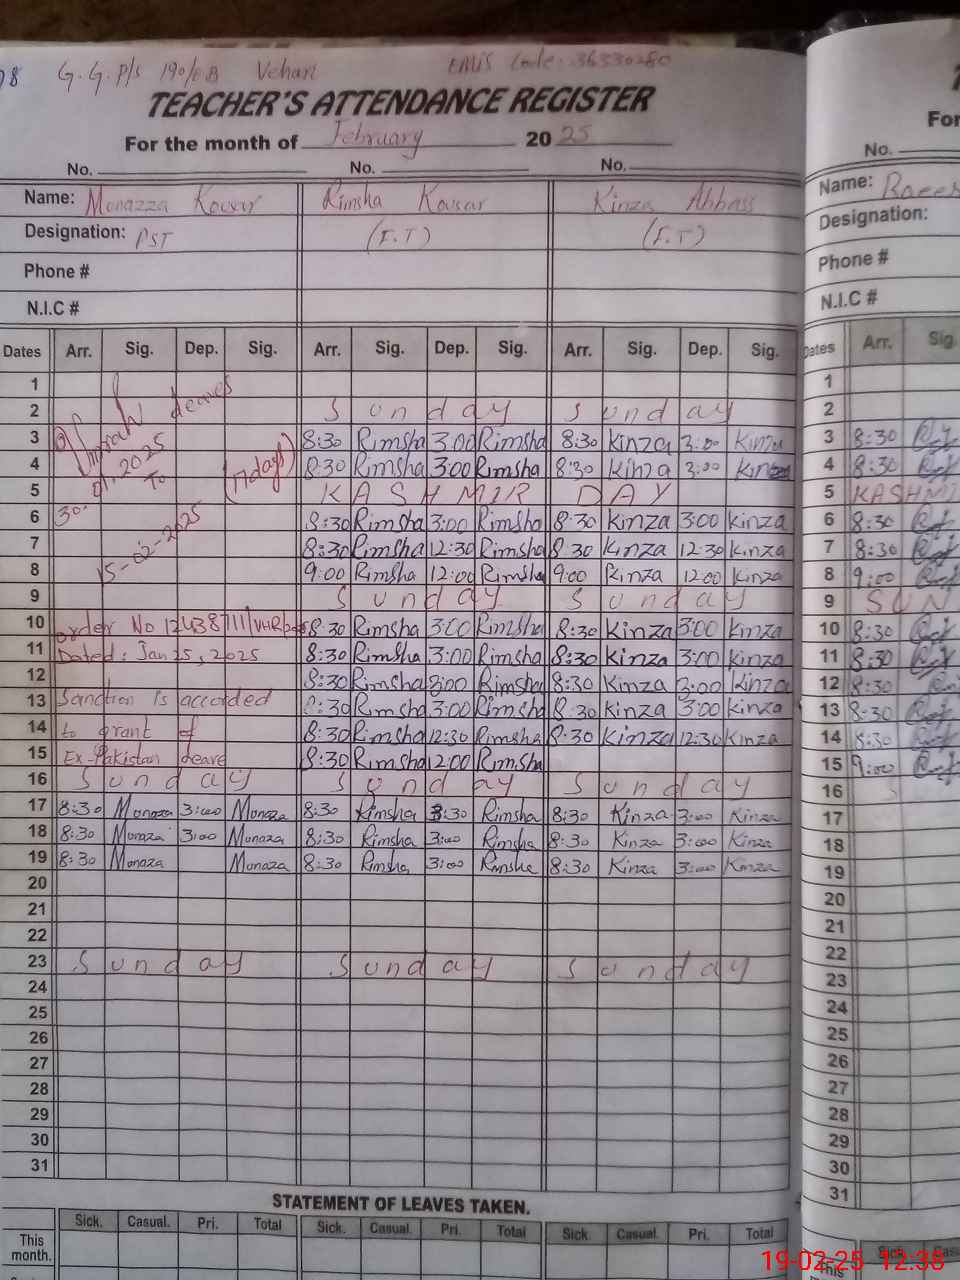 G.G.P/S 190/EB Vehari EMIS Code: 36330280
TEACHER'S ATTENDANCE REGISTER
For the month of February 2025
No. No. No.
Name: Monazza Kousar Rimsha Kousar Kinza Abbass
Designation: PST (I.T) (I.T)
Phone #
N.I.C #
Dates Arr. Sig. Dep. Sig. Arr. Sig. Dep. Sig. Arr. Sig. Dep. Sig.
1
2 Sunday Sunday
3 8:30 Rimsha 3:00 Rimsha 8:30 Kinza 3:00 Kinza
4 8:30 Rimsha 3:00 Rimsha 8:30 Kinza 3:00 Kinza
5 KASHMIR DAY
6 8:30 Rimsha 3:00 Rimsha 8:30 Kinza 3:00 Kinza
7 8:30 Rimsha 12:30 Rimsha 8:30 Kinza 12:30 Kinza
8 9:00 Rimsha 12:00 Rimsha 9:00 Kinza 12:00 Kinza
9 Sunday Sunday
leaves
30. 01. 2025
To
15-02-2025
(17days)
10 order No 8:30 Rimsha 3:00 Rimsha 8:30 Kinza 3:00 Kinza
11 Dated: Jan 25, 2025 8:30 Rimsha 3:00 Rimsha 8:30 Kinza 3:00 Kinza
12 8:30 Rimsha 3:00 Rimsha 8:30 Kinza 3:00 Kinza
13 Sanction is accorded 8:30 Rimsha 3:00 Rimsha 8:30 Kinza 3:00 Kinza
14 to grant of 8:30 Rimsha 12:30 Rimsha 8:30 Kinza 12:30 Kinza
15 Ex-Pakistan leave 8:30 Rimsha 12:00 Rimsha
16 Sunday Sunday Sunday
17 8:30 Monaza 3:00 Monaza 8:30 Rimsha 3:30 Rimsha 8:30 Kinza 3:00 Kinza
18 8:30 Monaza 3:00 Monaza 8:30 Rimsha 3:00 Rimsha 8:30 Kinza 3:00 Kinza
19 8:30 Monaza Monaza 8:30 Rimsha 3:00 Rimsha 8:30 Kinza 3:00 Kinza
20
21
22
23 Sunday Sunday Sunday
24
25
26
27
28
29
30
31
STATEMENT OF LEAVES TAKEN.
Sick. Casual. Pri. Total Sick. Casual. Pri. Total Sick. Casual. Pri. Total
This
month.
For
No.
Name:
Designation:
Phone #
N.I.C #
Dates Arr. Sig.
1
2
3 8:30
4 8:30
5 KASHMI
6 8:30
7 8:30
8 9:00
9 SUN
10 8:30
11 8:30
12 8:30
13 8:30
14 8:30
15 9:00
16
17
18
19
20
21
22
23
24
25
26
27
28
29
30
31
Sick.
This
19-02-25 12:38